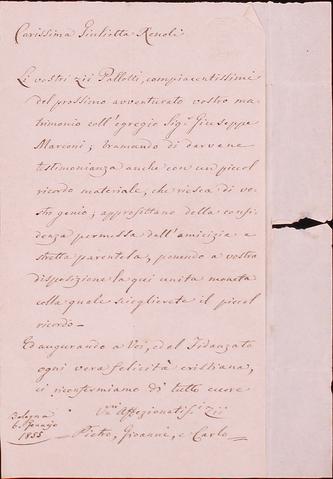 Carissima Giulietta Renoli
Li vostri zii Pallotti, compiacentissimi
del prossimo avventurato vostro ma-
trimonio coll'egregio Sigr Giuseppe
Marconi; bramando di darvene
testimonianza anche con un piccol
ricordo materiale, che riesca di vo-
stro genio; approfittano della confi-
denza permessa dall'amicizia e
stretta parentela, ponendo a vostra
disposizione la qui unita moneta
colla quale sceglierete il piccol
ricordo—
Ed augurando a Voi, e al Fidanzato
ogni vera felicità cristiana,
ci riconfermiamo di tutto cuore
Vri Affezionatissi Zii
Pietro, Gioanni, e Carlo
Bologna
6. Gennajo
1855